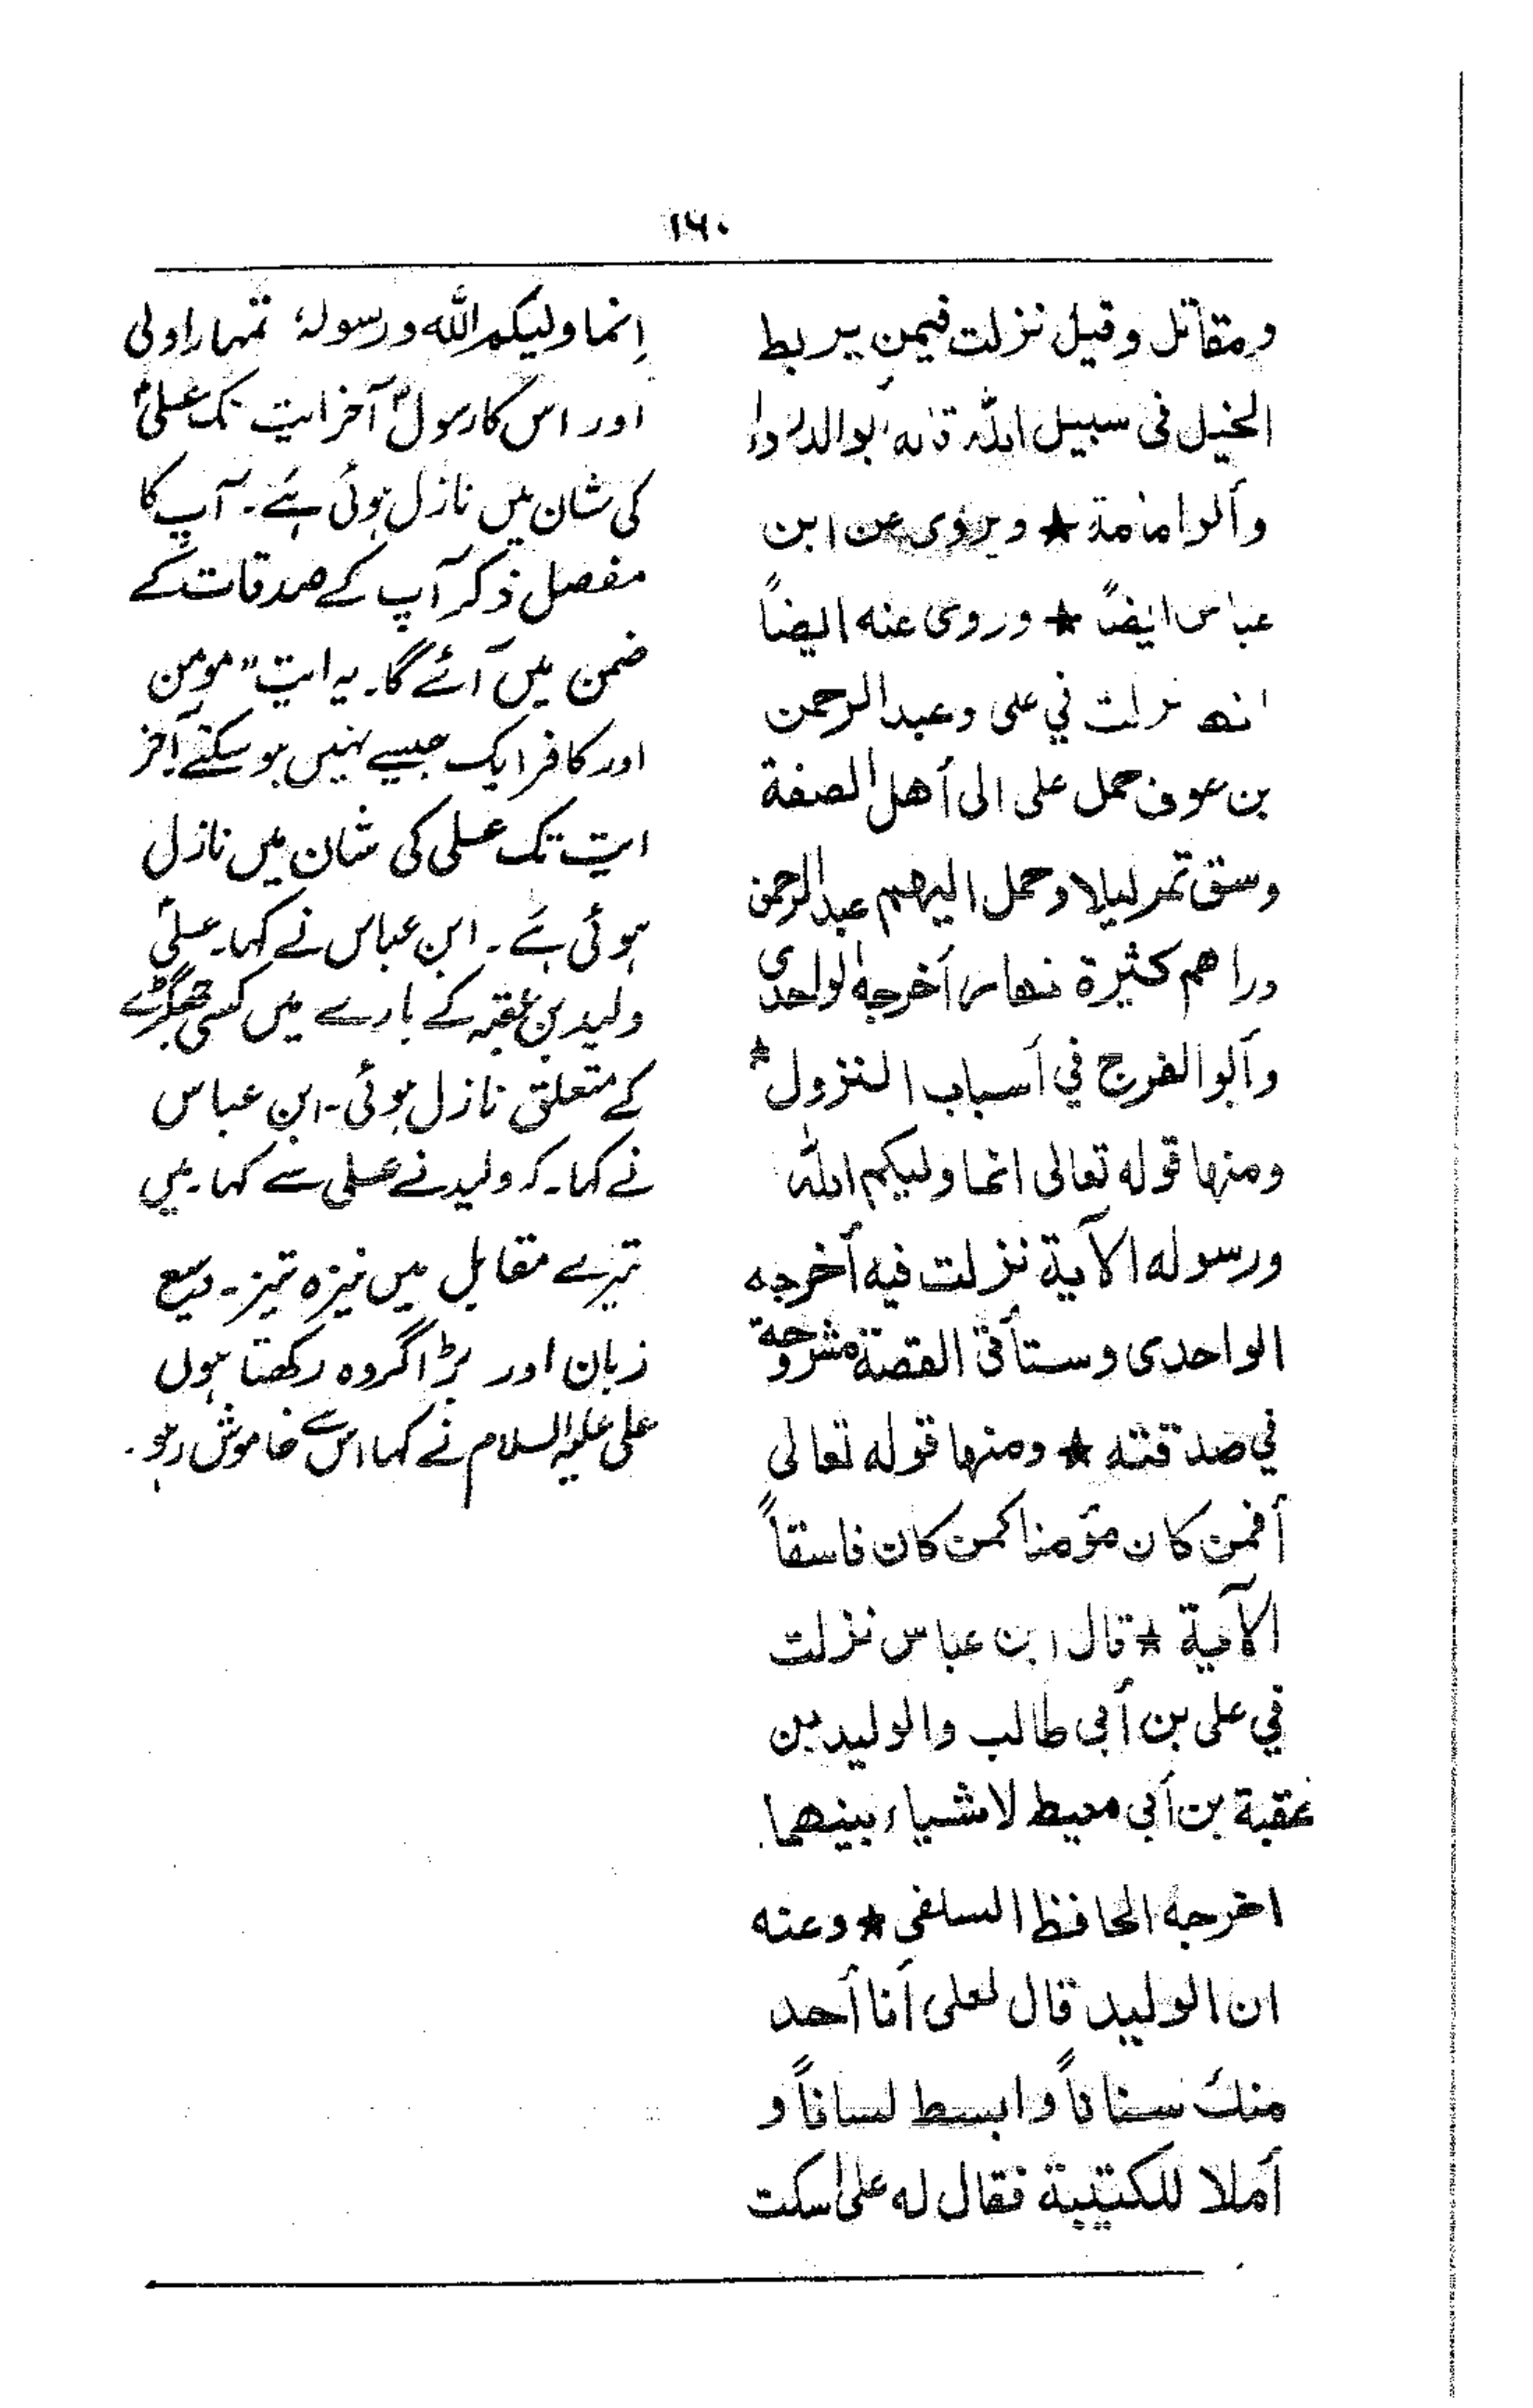 ۱۶۰
ومقاتل وقيل نزلت فيمن يربط
الخيل فى سبيل الله قاله ابوالدرداء
وأبوامامة ★ ويروى عن ابن
عباس ايضاً ★ وروى عنه ايضاً
انها نزلت في على وعبدالرحمن
بن عوف حمل على الى أهل الصفة
وسق تمر ليلا وحمل اليهم عبدالرحمن
دراهم كثيرة نهارا أخرجه الواحدى
وأبوالفرج في أسباب النزول ★
ومنها قوله تعالى انما وليكم الله
ورسوله الآية نزلت فيه أخرجه
الواحدى وستأتى القصة مشروحة
في صدقته ★ ومنها قوله تعالى
أفمن كان مؤمنا كمن كان فاسقاً
الآية ★ قال ابن عباس نزلت
في على بن أبى طالب والوليد بن
عقبة بن أبى معيط لاشياء بينهما
اخرجه الحافظ السلفى ★ وعنه
ان الوليد قال لعلى أنا أحد
منك سناناً وابسط لساناً و
أملا للكتيبة فقال له على اسكت
اِنما وليكم الله ورسولہٗ تمہارا ولی
اور اس کا رسولؐ آخر ایت تک علیؑ
کی شان میں نازل ہوئی ہے۔ آپ کا
مفصل ذکر آپ کے صدقات کے
ضمن میں آئے گا۔ یہ ایت "مومن
اور کافر ایک جیسے نہیں ہو سکتے آخر
ایت تک علی کی شان میں نازل
ہوئی ہے۔ ابن عباس نے کہا۔ علیؑ
ولید بن عقبہ کے بارے میں کسی جھگڑے
کے متعلق نازل ہوئی۔ ابن عباس
نے کہا۔ کہ ولید نے علی سے کہا۔ میں
تیرے مقابل میں نیزہ تیز۔ وسیع
زبان اور بڑا گروہ رکھتا ہوں
علی علیہ السلام نے کہا اس سے خاموش رہو۔